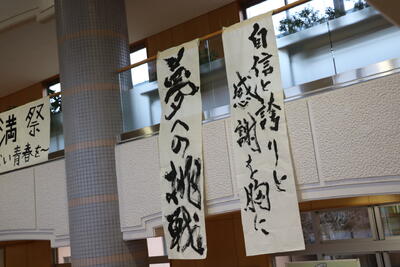 自信と誇りと
感謝を胸に
夢への挑戦
満祭
い青春を〜